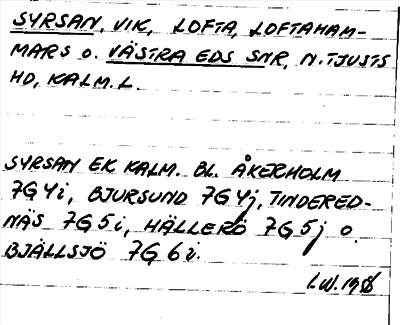 SYRSAN, VIK, LOFTA, LOFTAHAM-
MARS O. VÄSTRA EDS SNR, N. TJUSTS
HD, KALM. L.
SYRSAN EK KALM. BL. ÅKERHOLM
7G4i, BJURSUND 7G4j, TINDERED-
NÄS 7G5i, HÄLLERÖ 7G5j O.
BJÄLLSJÖ 7G6i.
I.W.